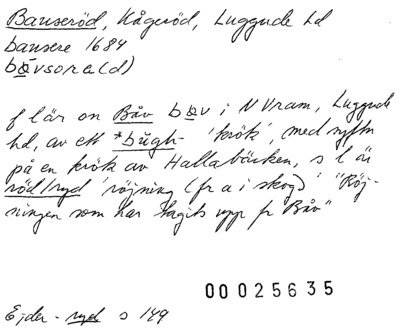 Bauseröd, Kågeröd, Luggude hd
bausere 1684
bǫvsora(d)
f lär on Båv bǫv i N Vram, Luggude
hd, av ett *bŭgh- 'krök', med syftn
på en krök av Hallabäcken, s l är
röd/ryd 'röjning (fr a i skog)' "Röj-
ningen som har tagits upp fr Båv"
00025635
Ejder - ryd s 149